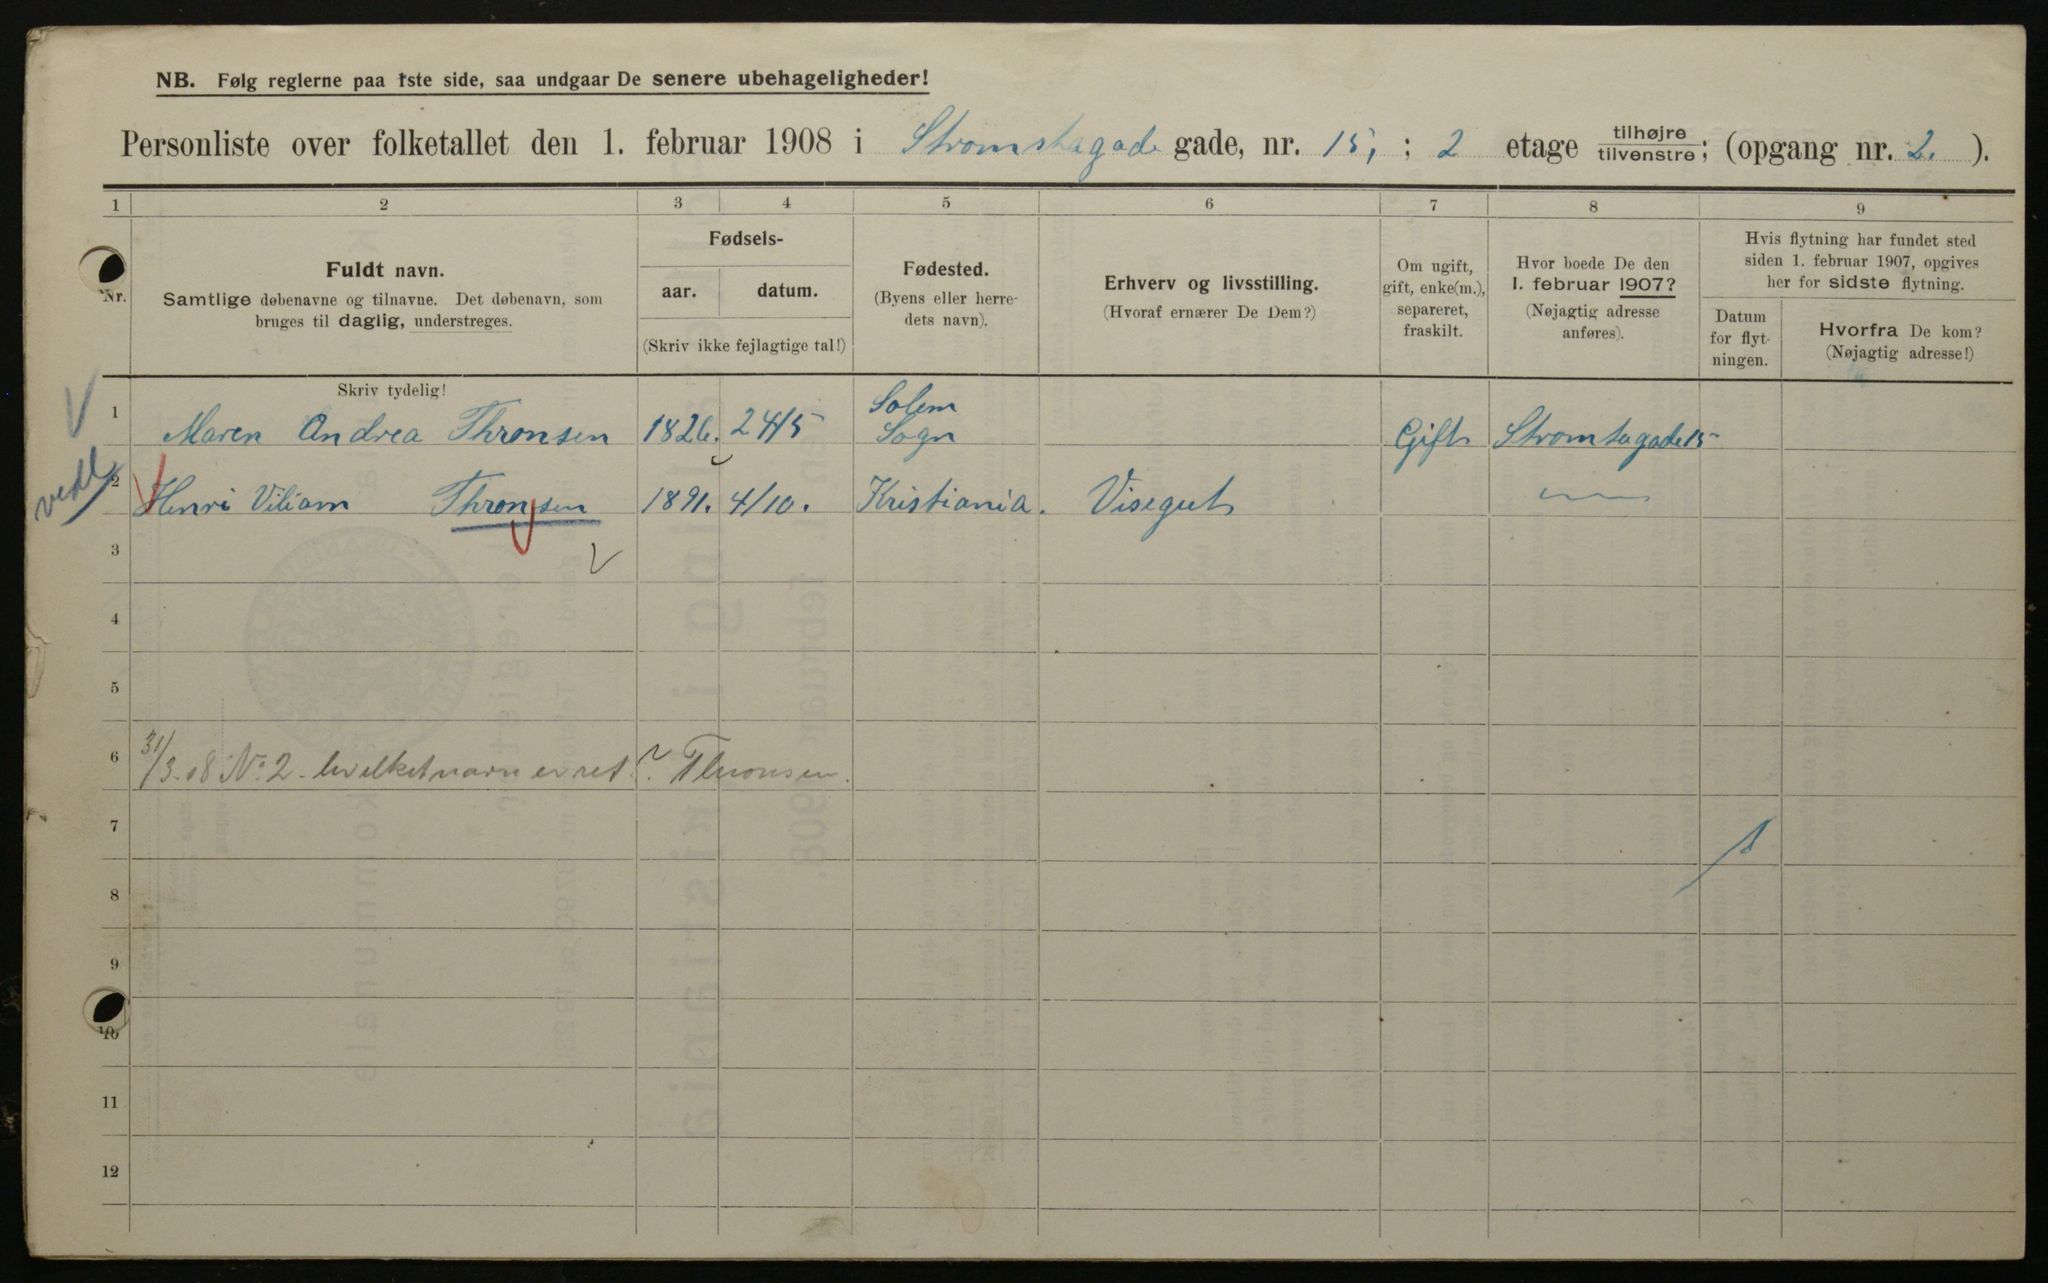 NB. Følg reglerne paa 1ste side, saa undgaar De senere ubehageligheder!
Personliste over folketallet den 1. februar 1908 i Stromstagade gade, nr. 15, ; 2 etage tilhøjre tilvenstre; (opgang nr. 2. ).
1 2 3 4 5 6 7 8 9
Nr.
Fuldt navn.
Samtlige døbenavne og tilnavne. Det døbenavn, som
bruges til daglig, understreges.
Fødsels-
aar. datum.
(Skriv ikke fejlagtige tal!)
Fødested.
(Byens eller herre-
dets navn).
Erhverv og livsstilling.
(Hvoraf ernærer De Dem?)
Om ugift,
gift, enke(m.),
separeret,
fraskilt.
Hvor boede De den
1. februar 1907?
(Nøjagtig adresse
anføres).
Hvis flytning har fundet sted
siden 1. februar 1907, opgives
her for sidste flytning.
Datum
for flyt-
ningen.
Hvorfra De kom?
(Nøjagtig adresse!)
Skriv tydelig!
1 Maren Andrea Thronsen 1826. 24/5 Solem Sogn Gift Stromtagade 15
2 Henri Viliam Thronsen 1891. 4/10. Kristiania. Visegut
3
4
5
6 31/3.08 No. 2. hvilket navn er ret? Thronsen.
7
8
9
10
11
12